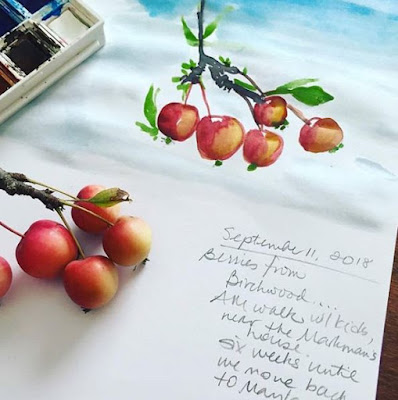 September 11, 2018
Berries from
Birchwood....
AM walk w/ kids,
near the Markman's
house.
six weeks until
we move back
to